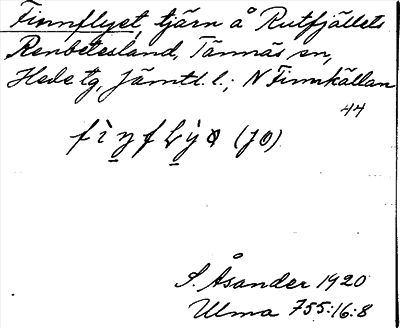 Finnflyet, tjärn å Rutfjällets
Renbetesland, Tännäs sn,
Hede tg, Jämtl. l.; N Finnkällan
44
(JO)
S. Åsander 1920
Ulma 755:16:8